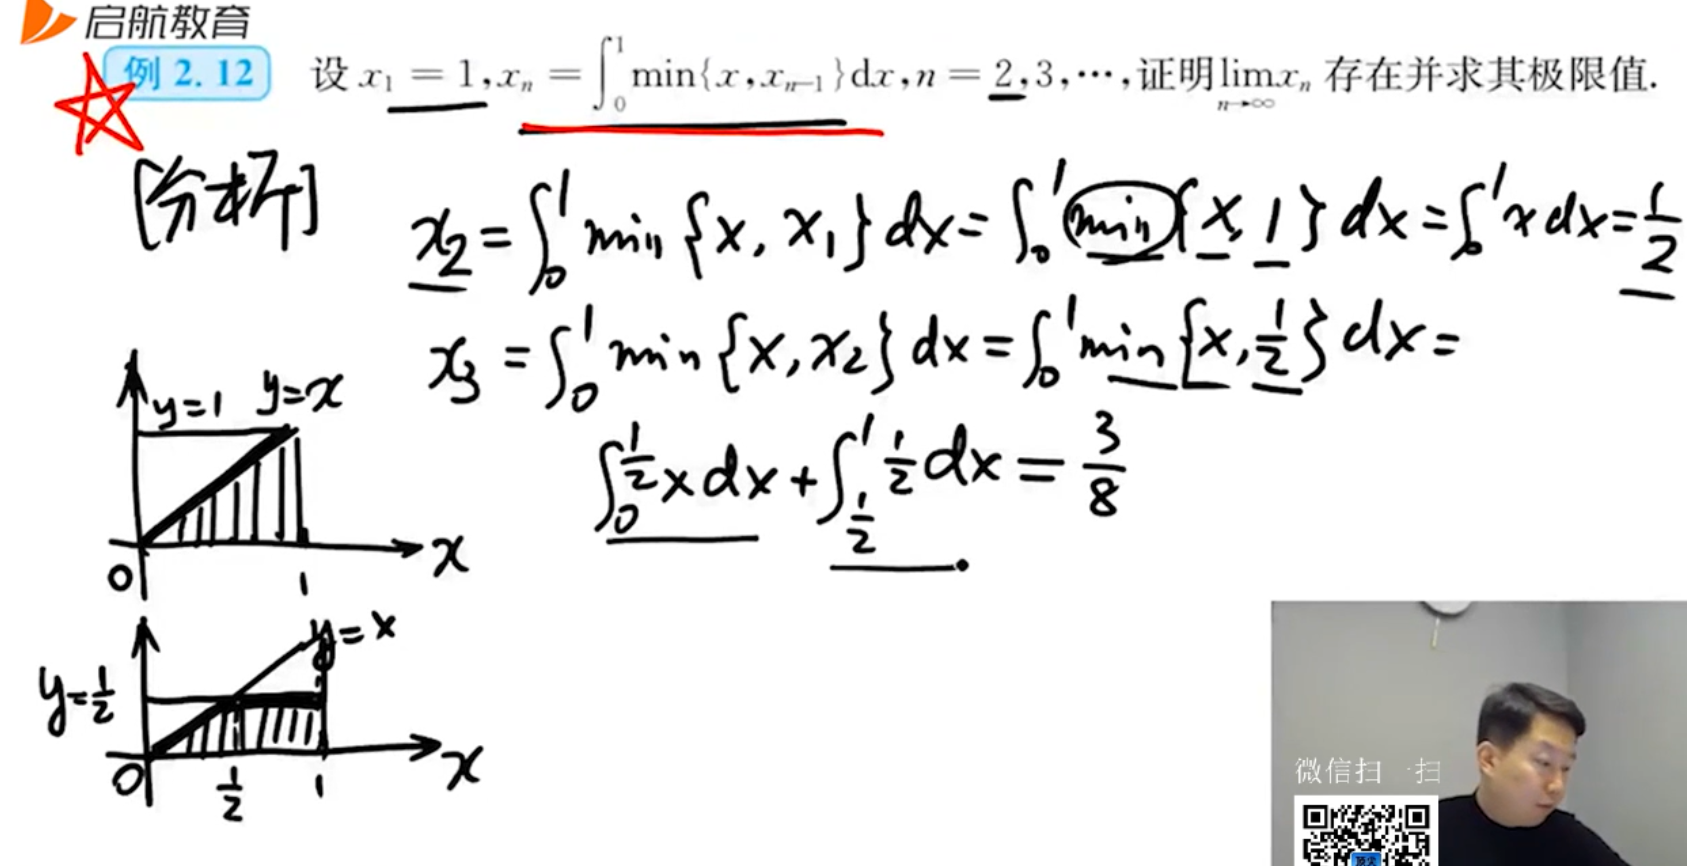 启航教育
例 2.12 设 x₁ = 1, xₙ = ∫₀¹ min{x, xₙ₋₁}dx, n = 2,3,⋯,证明 lim_{n→∞} xₙ 存在并求其极限值.
[分析]
x₂ = ∫₀¹ min{x, x₁}dx = ∫₀¹ min{x, 1}dx = ∫₀¹ x dx = 1/2
x₃ = ∫₀¹ min{x, x₂}dx = ∫₀¹ min{x, 1/2}dx =
∫₀^{1/2} x dx + ∫_{1/2}^1 1/2 dx = 3/8
y=1 y=x
x
0 1
y=x
y=1/2
x
0 1/2 1
微信扫一扫